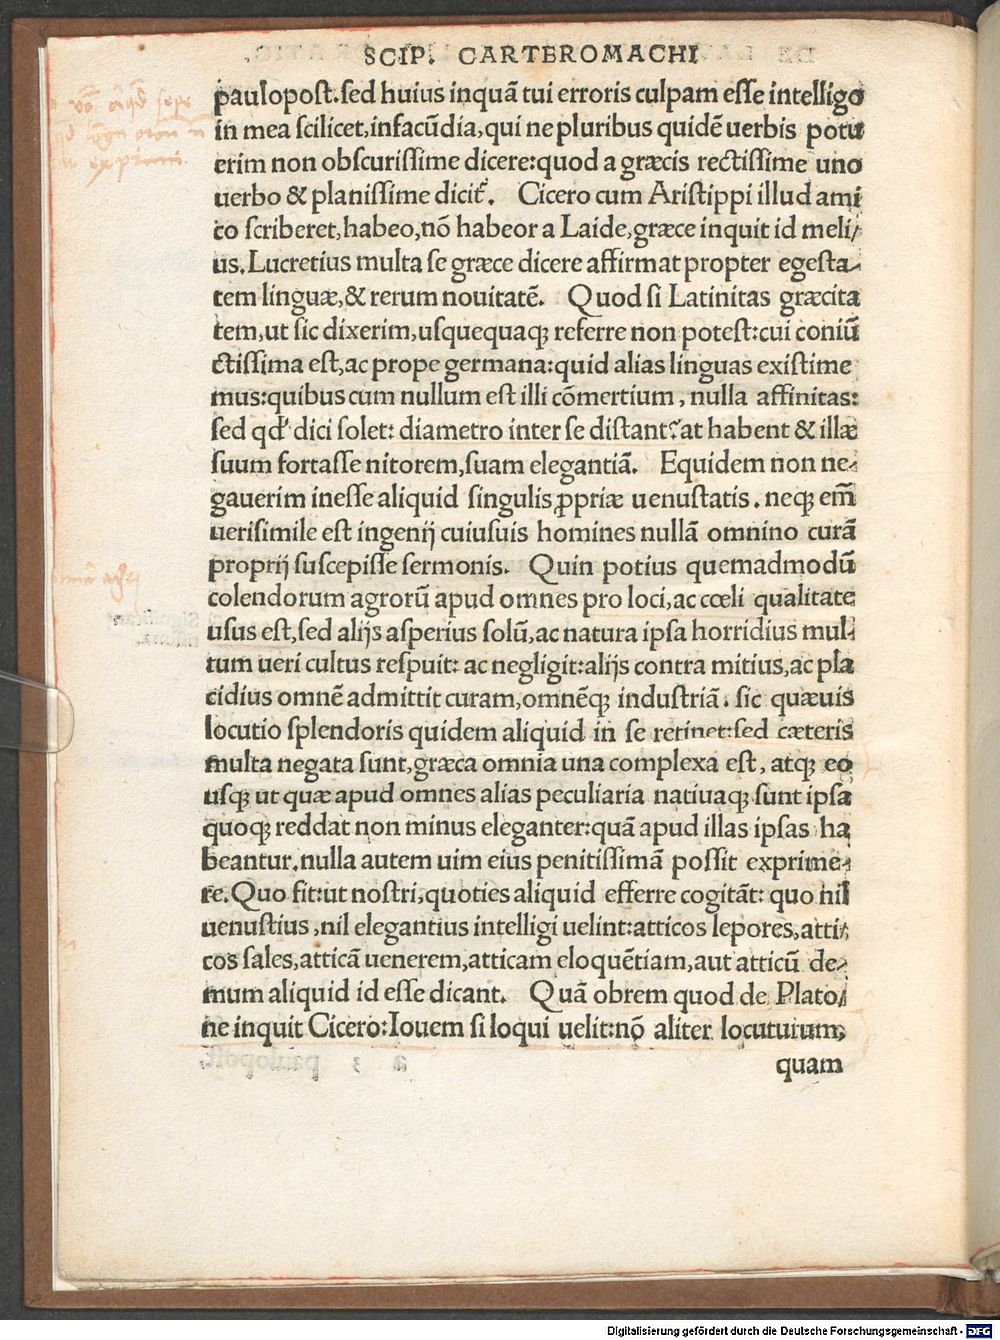 SCIP. CARTEROMACHI
paulopost. sed huius inquã tui erroris culpam esse intelligo
in mea scilicet, infacũdia, qui ne pluribus quidẽ uerbis potu
erim non obscurissime dicere: quod a græcis rectissime uno
uerbo & planissime dicit᷑. Cicero cum Aristippi illud ami
co scriberet, habeo, nõ habeor a Laide, græce inquit id meli/
us. Lucretius multa se græce dicere affirmat propter egesta-
tem linguæ, & rerum nouitatẽ. Quod si Latinitas græcita
tem, ut sic dixerim, usquequaq; referre non potest: cui coniũ
ctissima est, ac prope germana: quid alias linguas existime
mus: quibus cum nullum est illi cõmertium, nulla affinitas:
sed qd' dici solet: diametro inter se distant? at habent & illæ
suum fortasse nitorem, suam elegantiã. Equidem non ne-
gauerim inesse aliquid singulis ꝓpriæ uenustatis. neq; em̃
uerisimile est ingenij cuiusuis homines nullã omnino curã
proprij suscepisse sermonis. Quin potius quemadmodũ
colendorum agrorũ apud omnes pro loci, ac cœli qualitate
usus est, sed alijs asperius solũ, ac natura ipsa horridius mul-
tum ueri cultus respuit: ac negligit: alijs contra mitius, ac pla
cidius omnẽ admittit curam, omnẽq; industriã. sic quæuis
locutio splendoris quidem aliquid in se retinet: sed cæteris
multa negata sunt, græca omnia una complexa est, atq; eo
usq; ut quæ apud omnes alias peculiaria natiuaq; sunt ipsa
quoq; reddat non minus eleganter: quã apud illas ipsas ha
beantur. nulla autem uim eius penitissimã possit exprime-
re. Quo fit: ut nostri, quoties aliquid efferre cogitãt: quo nil
uenustius, nil elegantius intelligi uelint: atticos lepores, atti/
cos sales, atticã uenerem, atticam eloquẽtiam, aut atticũ de-
mum aliquid id esse dicant. Quã obrem quod de Plato/
ne inquit Cicero: Iouem si loqui uelit: nõ aliter locuturum,
quam
Digitalisierung gefördert durch die Deutsche Forschungsgemeinschaft - DFG